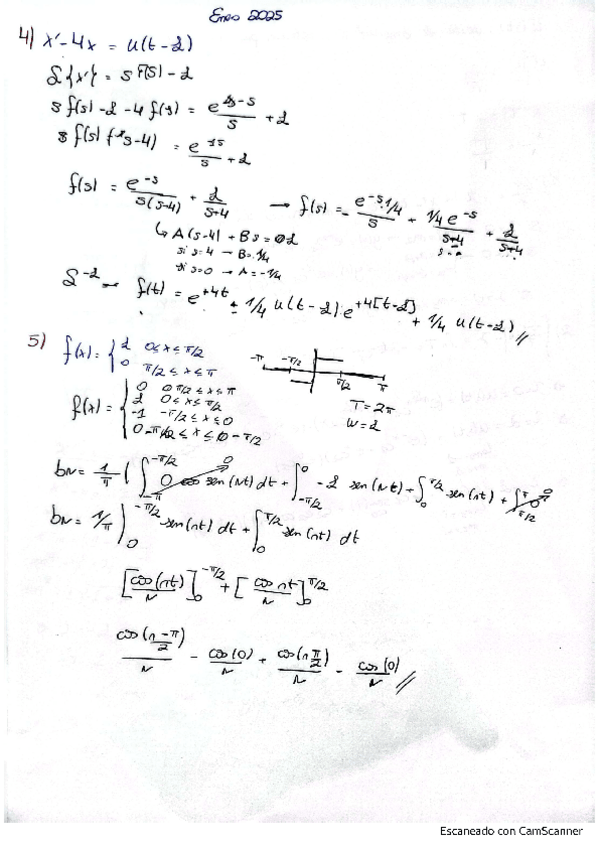 Enero 2025
4) x' - 4x = u(t-1)
L{x'} = s f(s) - 1
s f(s) - 1 - 4 f(s) = e^-s / s + 1
f(s) = e^-s / s(s-4) + 1 / s+4 → f(s) = - e^-s · 1/4 / s + 1/4 e^-s / s+4 + 1 / s+4
↳ A(s-4) + Bs =
si s=4 → B = 1/4
si s=0 → A = -1/4
f(t) = e^+4t + 1/4 u(t-1) · e^+4[t-1] + 1/4 u(t-1) //
5) f(x) = { 1 0≤x≤π/2
0 π/2≤x≤π
-π -π/2 π/2 π
f(x) = { 0 π/2≤x≤π
1 0≤x≤π/2
-1 -π/2≤x≤0
T = 2π
W = 1
bn = 1/π ( ∫ 0 sen(nt) dt + ∫_-π/2^0 -1 sen(nt) + ∫_0^π/2 sen(nt) +
bn = 1/π ∫_0^-π/2 sen(nt) dt + ∫_0^π/2 sen(nt) dt
[cos(nt) / n]_0^-π/2 + [cos nt / n]_0^π/2
cos(n -π/2) / n - cos(0) / n + cos(n π/2) / n - cos(0) / n //
Escaneado con CamScanner